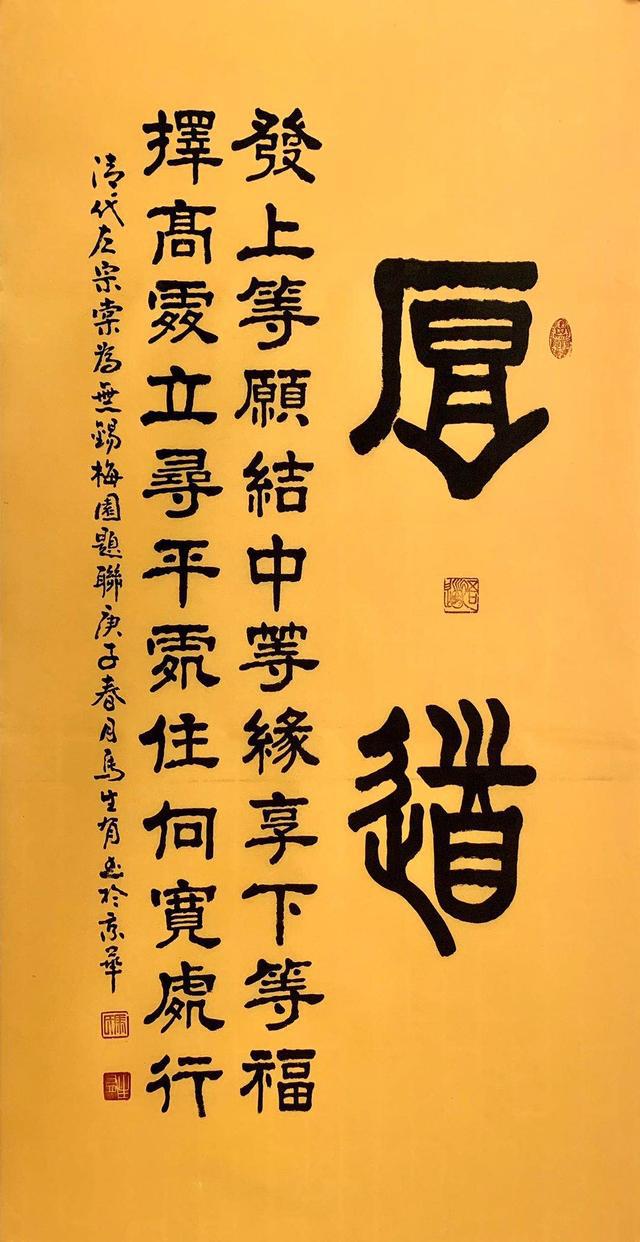 厚道
發上等願結中等緣享下等福
擇髙處立尋平處住向寬處行
清代左宗棠為無錫梅園題聯庚子春月馬生有書於京華